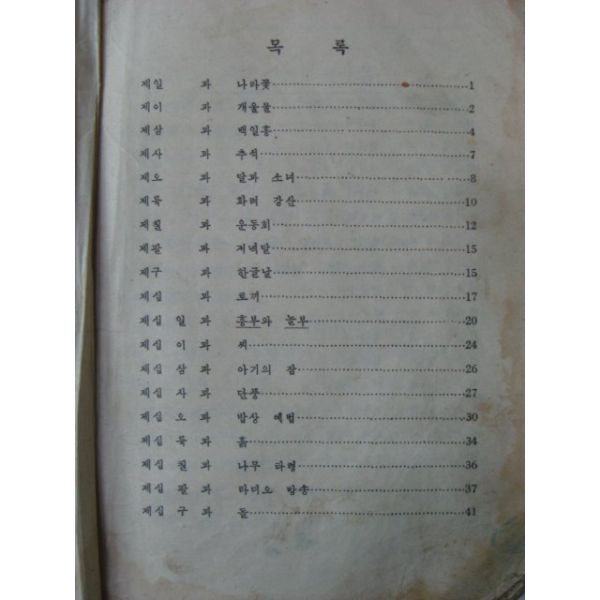 목 록
제일 과 나라꽃 1
제이 과 개울물 2
제삼 과 백일홍 4
제사 과 추석 7
제오 과 달과 소녀 8
제륙 과 화려 강산 10
제칠 과 운동회 12
제팔 과 저녁달 15
제구 과 한글날 15
제십 과 토끼 17
제십 일 과 흥부와 놀부 20
제십 이 과 씨 24
제십 삼 과 아기의 잠 26
제십 사 과 단풍 27
제십 오 과 밥상 예법 30
제십 륙 과 흙 34
제십 칠 과 나무 타령 36
제십 팔 과 라디오 방송 37
제십 구 과 돌 41